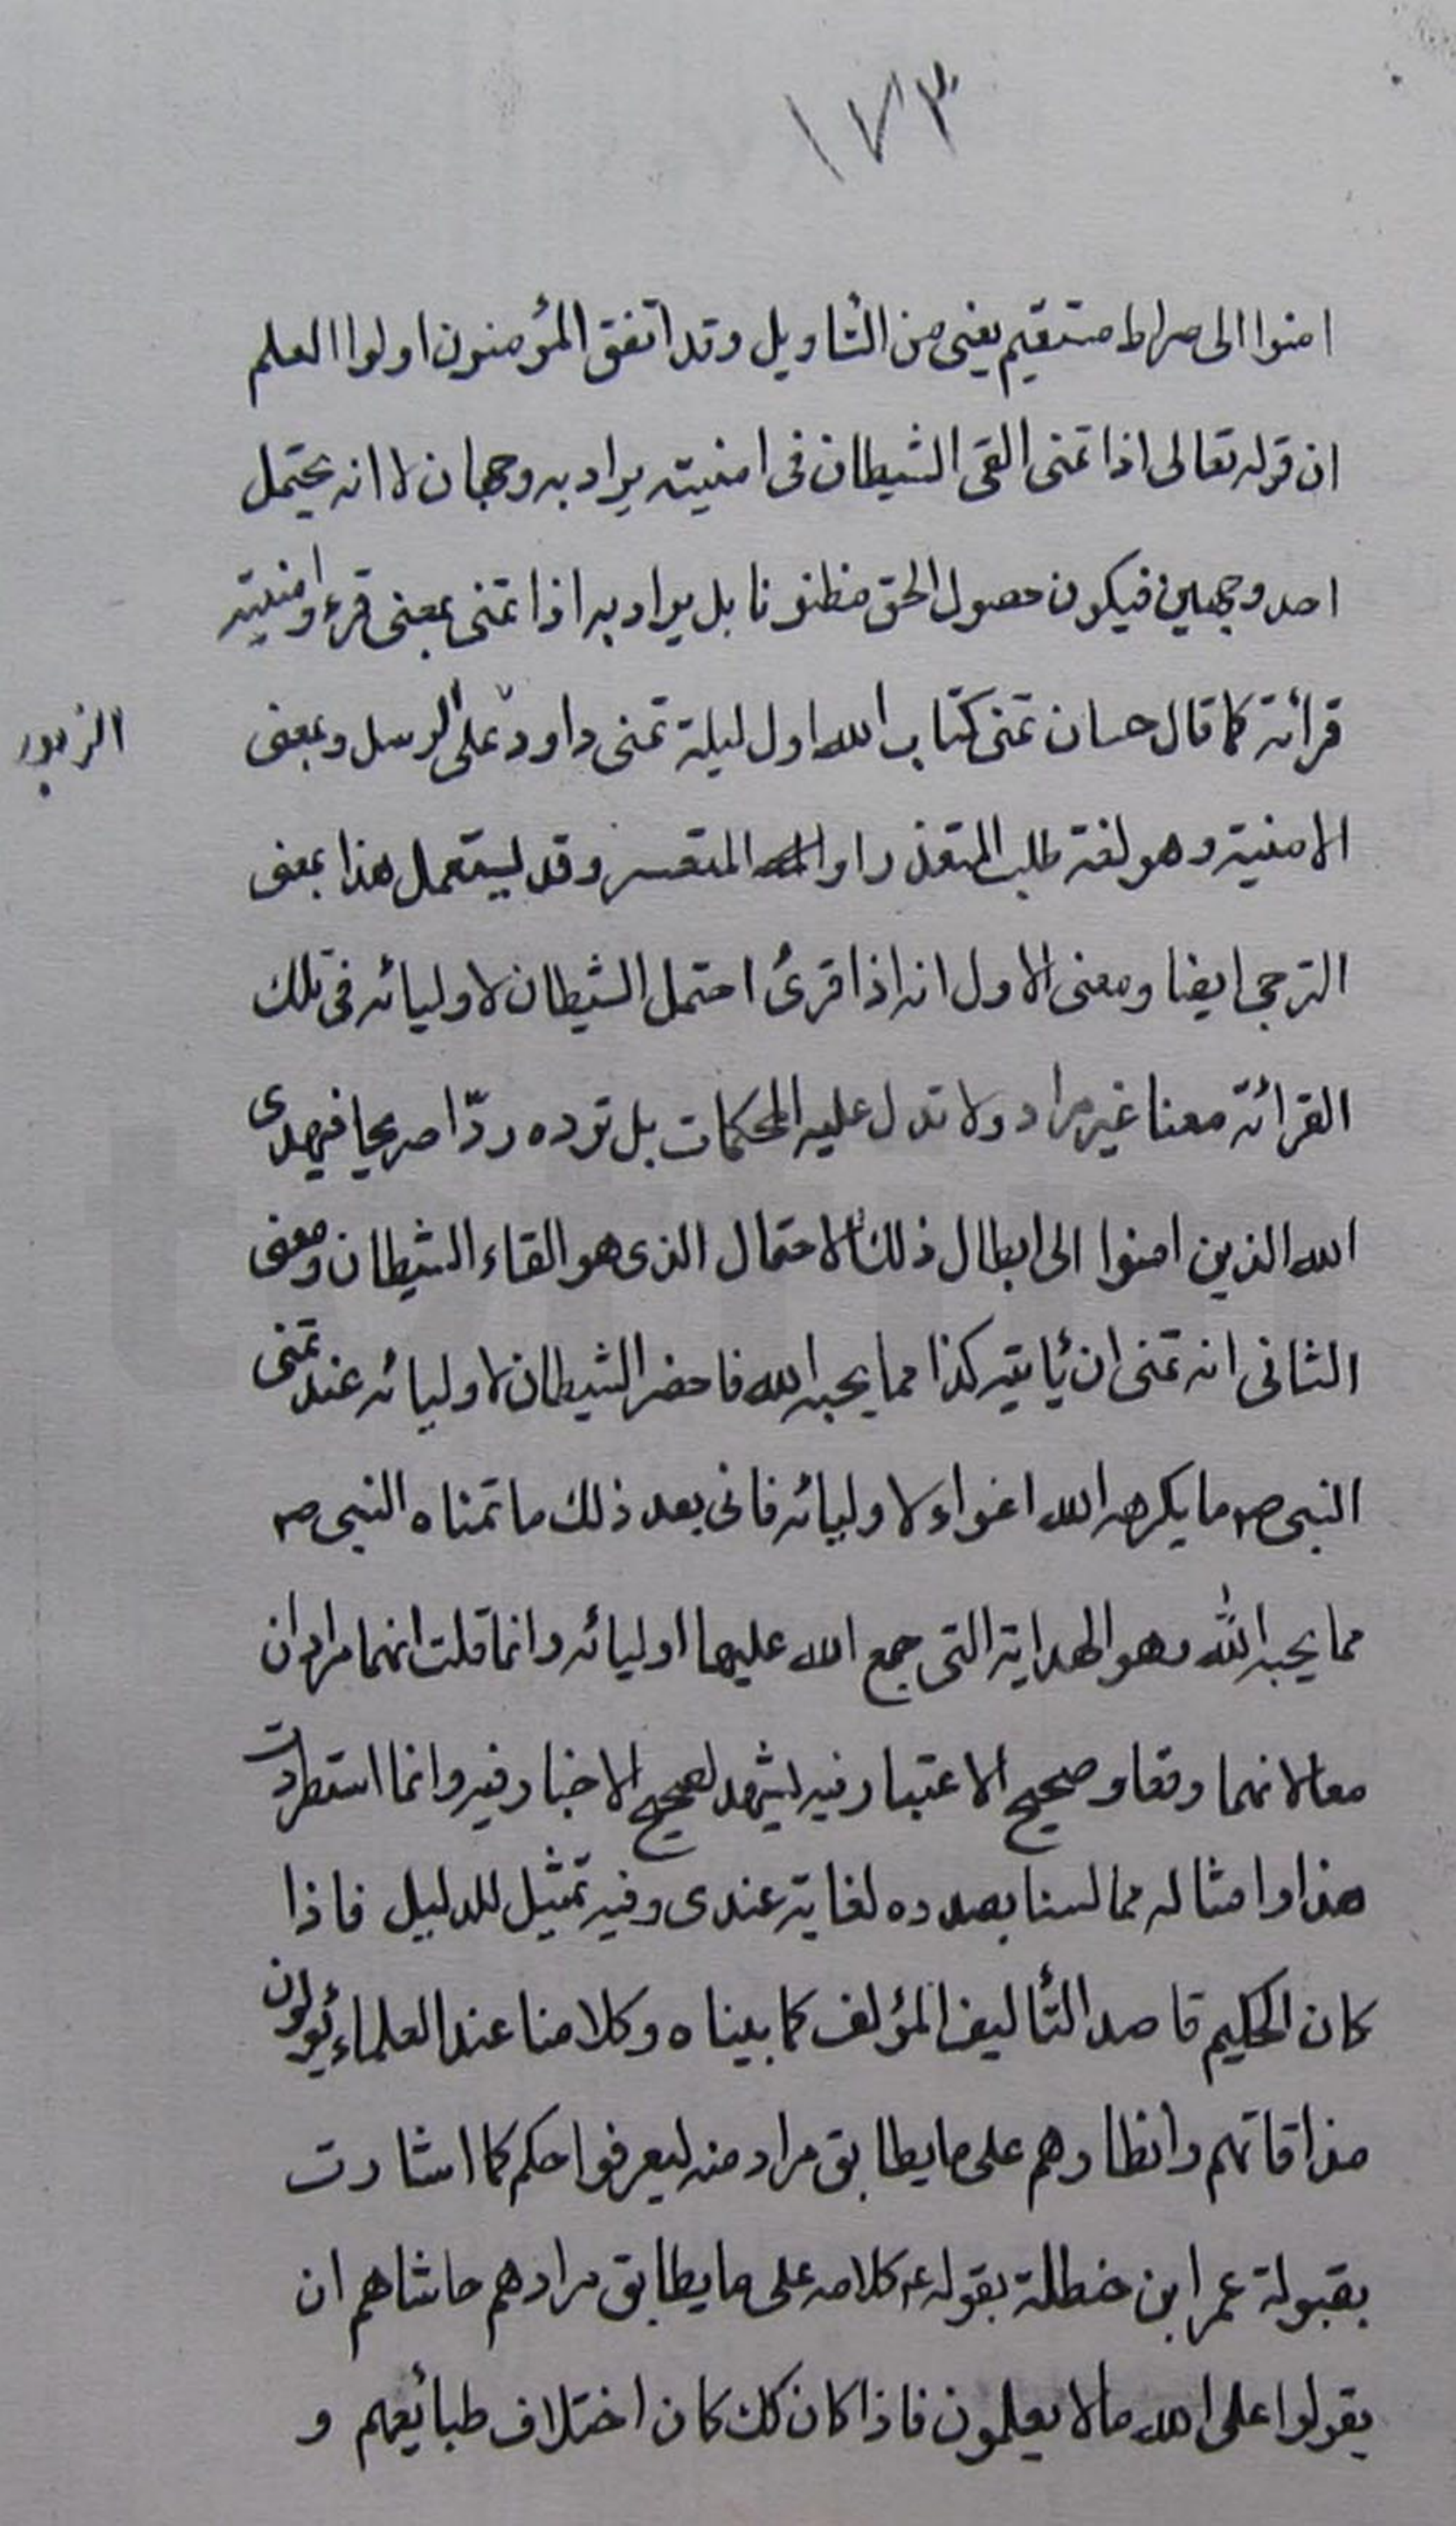 ١٧٣
امنوا الى صراط مستقيم يعنى من التأويل وقد اتفق المؤمنون اولوا العلم
ان قوله تعالى اذا تمنى القى الشيطان فى امنيته يراد به وجهان لا انه يحتمل
احد وجهين فيكون حصول الحق مظنونا بل يراد به اذا تمنى بمعنى قرء وامنيته
قرائة كما قال حسان تمنى كتاب الله اول ليلة تمنى داود على الرسل وبمعنى
الزبور
الامنية وهو لغة طلب المتعذر او المتعسر وقد يستعمل هذا بمعنى
الترجى ايضا ومعنى الاول انه اذا قرئ احتمل الشيطان لاوليائه فى تلك
القرائة معنا غير مراد ولا تدل عليه المحكمات بل ترده ردّا صريحا فيهدى
الله الذين امنوا الى ابطال ذلك الاحتمال الذى هو القاء الشيطان ومعنى
الثانى انه تمنى ان يأتيه كذا مما يحبه الله فاحضر الشيطان لاوليائه عند تمنى
النبى ص ما يكرهه الله اغواء لاوليائه فاتى بعد ذلك ما تمناه النبى ص
مما يحبه الله وهو الهداية التى جمع الله عليها اوليائه وانما قلت انهما مرادان
معا لانهما وقعا وصحيح الاعتبار فيه يشهد لصحيح الاخبار فيه وانما استطردت
هذا وامثاله مما لسنا بصدده لغاية عندى وفيه تمثيل للدليل فاذا
كان الحكيم قاصد التأليف المؤلف كما بيناه وكلامنا عند العلماء يؤولون
مذاقاتهم وانظارهم على ما يطابق مراد منه ليعرفوا حكم كما اشارت
بقبولة عمر ابن حنظلة بقوله ع كلامه على ما يطابق مرادهم حاشاهم ان
يقولوا على الله ما لا يعلمون فاذا كان كك كان اختلاف طبائعهم و